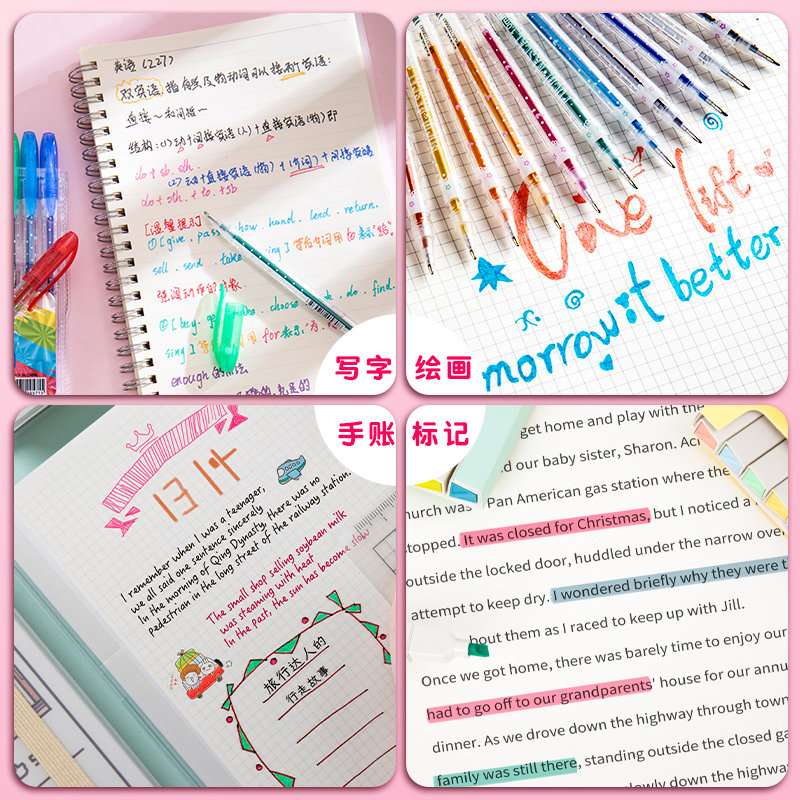 英语(227)
双宾语:指有些及物动词可以接两个宾语:
直接~和间接~
结构:(1)动+间接宾语(人)+直接宾语(物)即
do + sb. sth.
(2)动+直接宾语(物)+(介词)+间接宾语
do + sth. + to. + sb
[温馨提示]
①[give. pass. how. hand. lend. return.
sell. send. take
for表示
enough的用法
写字
Love list
morrow it better
绘画
手账
13 14
I remember when I was a teenager,
we all said one sentence sincerely
In the morning of Qing Dynasty, there was no
pedestrian in the long street of the railway station.
The small shop selling soybean milk
was steaming with heat
In the past, the sun has become slow
旅行达人的
行走故事
标记
get home and play with the
d our baby sister, Sharon. Acr
hurch was Pan American gas station where the
topped. It was closed for Christmas, but I noticed a
outside the locked door, huddled under the narrow over
attempt to keep dry. I wondered briefly why they were t
bout them as I raced to keep up with Jill.
Once we got home, there was barely time to enjoy our
had to go off to our grandparents' house for our annu
dinner. As we drove down the highway through town
family was still there, standing outside the closed ga
slowly down the highway